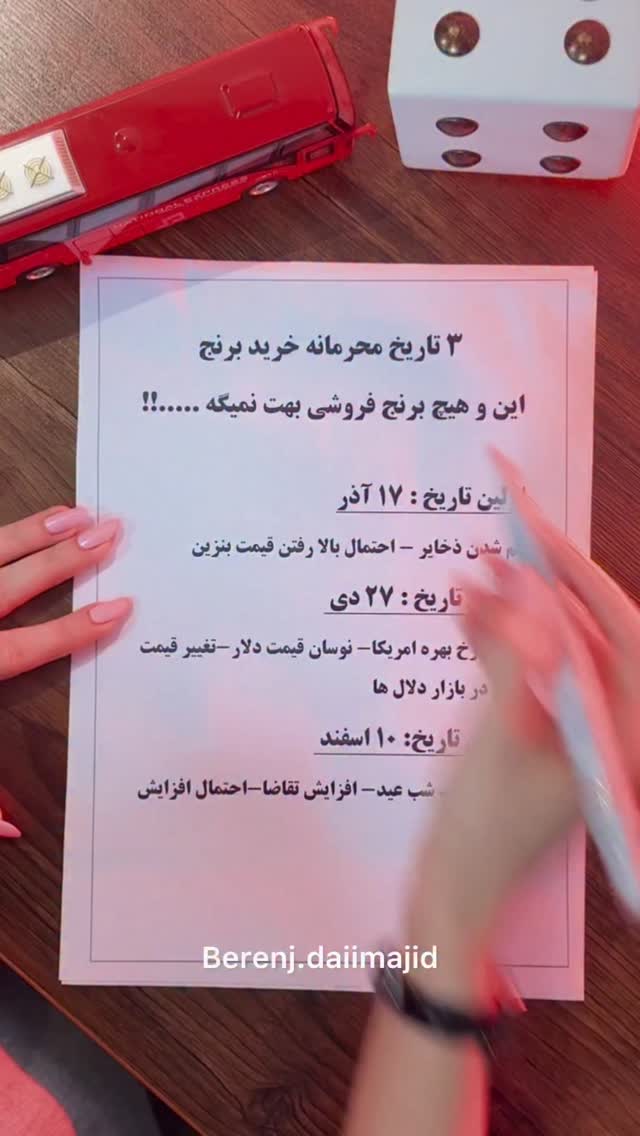 NATIONAL EXPRESS
۳ تاریخ محرمانه خرید برنج
این و هیچ برنج فروشی بهت نمیگه .....!!
تاریخ : ۱۷ آذر
شدن ذخایر - احتمال بالا رفتن قیمت بنزین
تاریخ : ۲۷ دی
بهره امریکا- نوسان قیمت دلار -تغییر قیمت
در بازار دلال ها
تاریخ: ۱۰ اسفند
شب عید- افزایش تقاضا-احتمال افزایش
Berenj.daiimajid